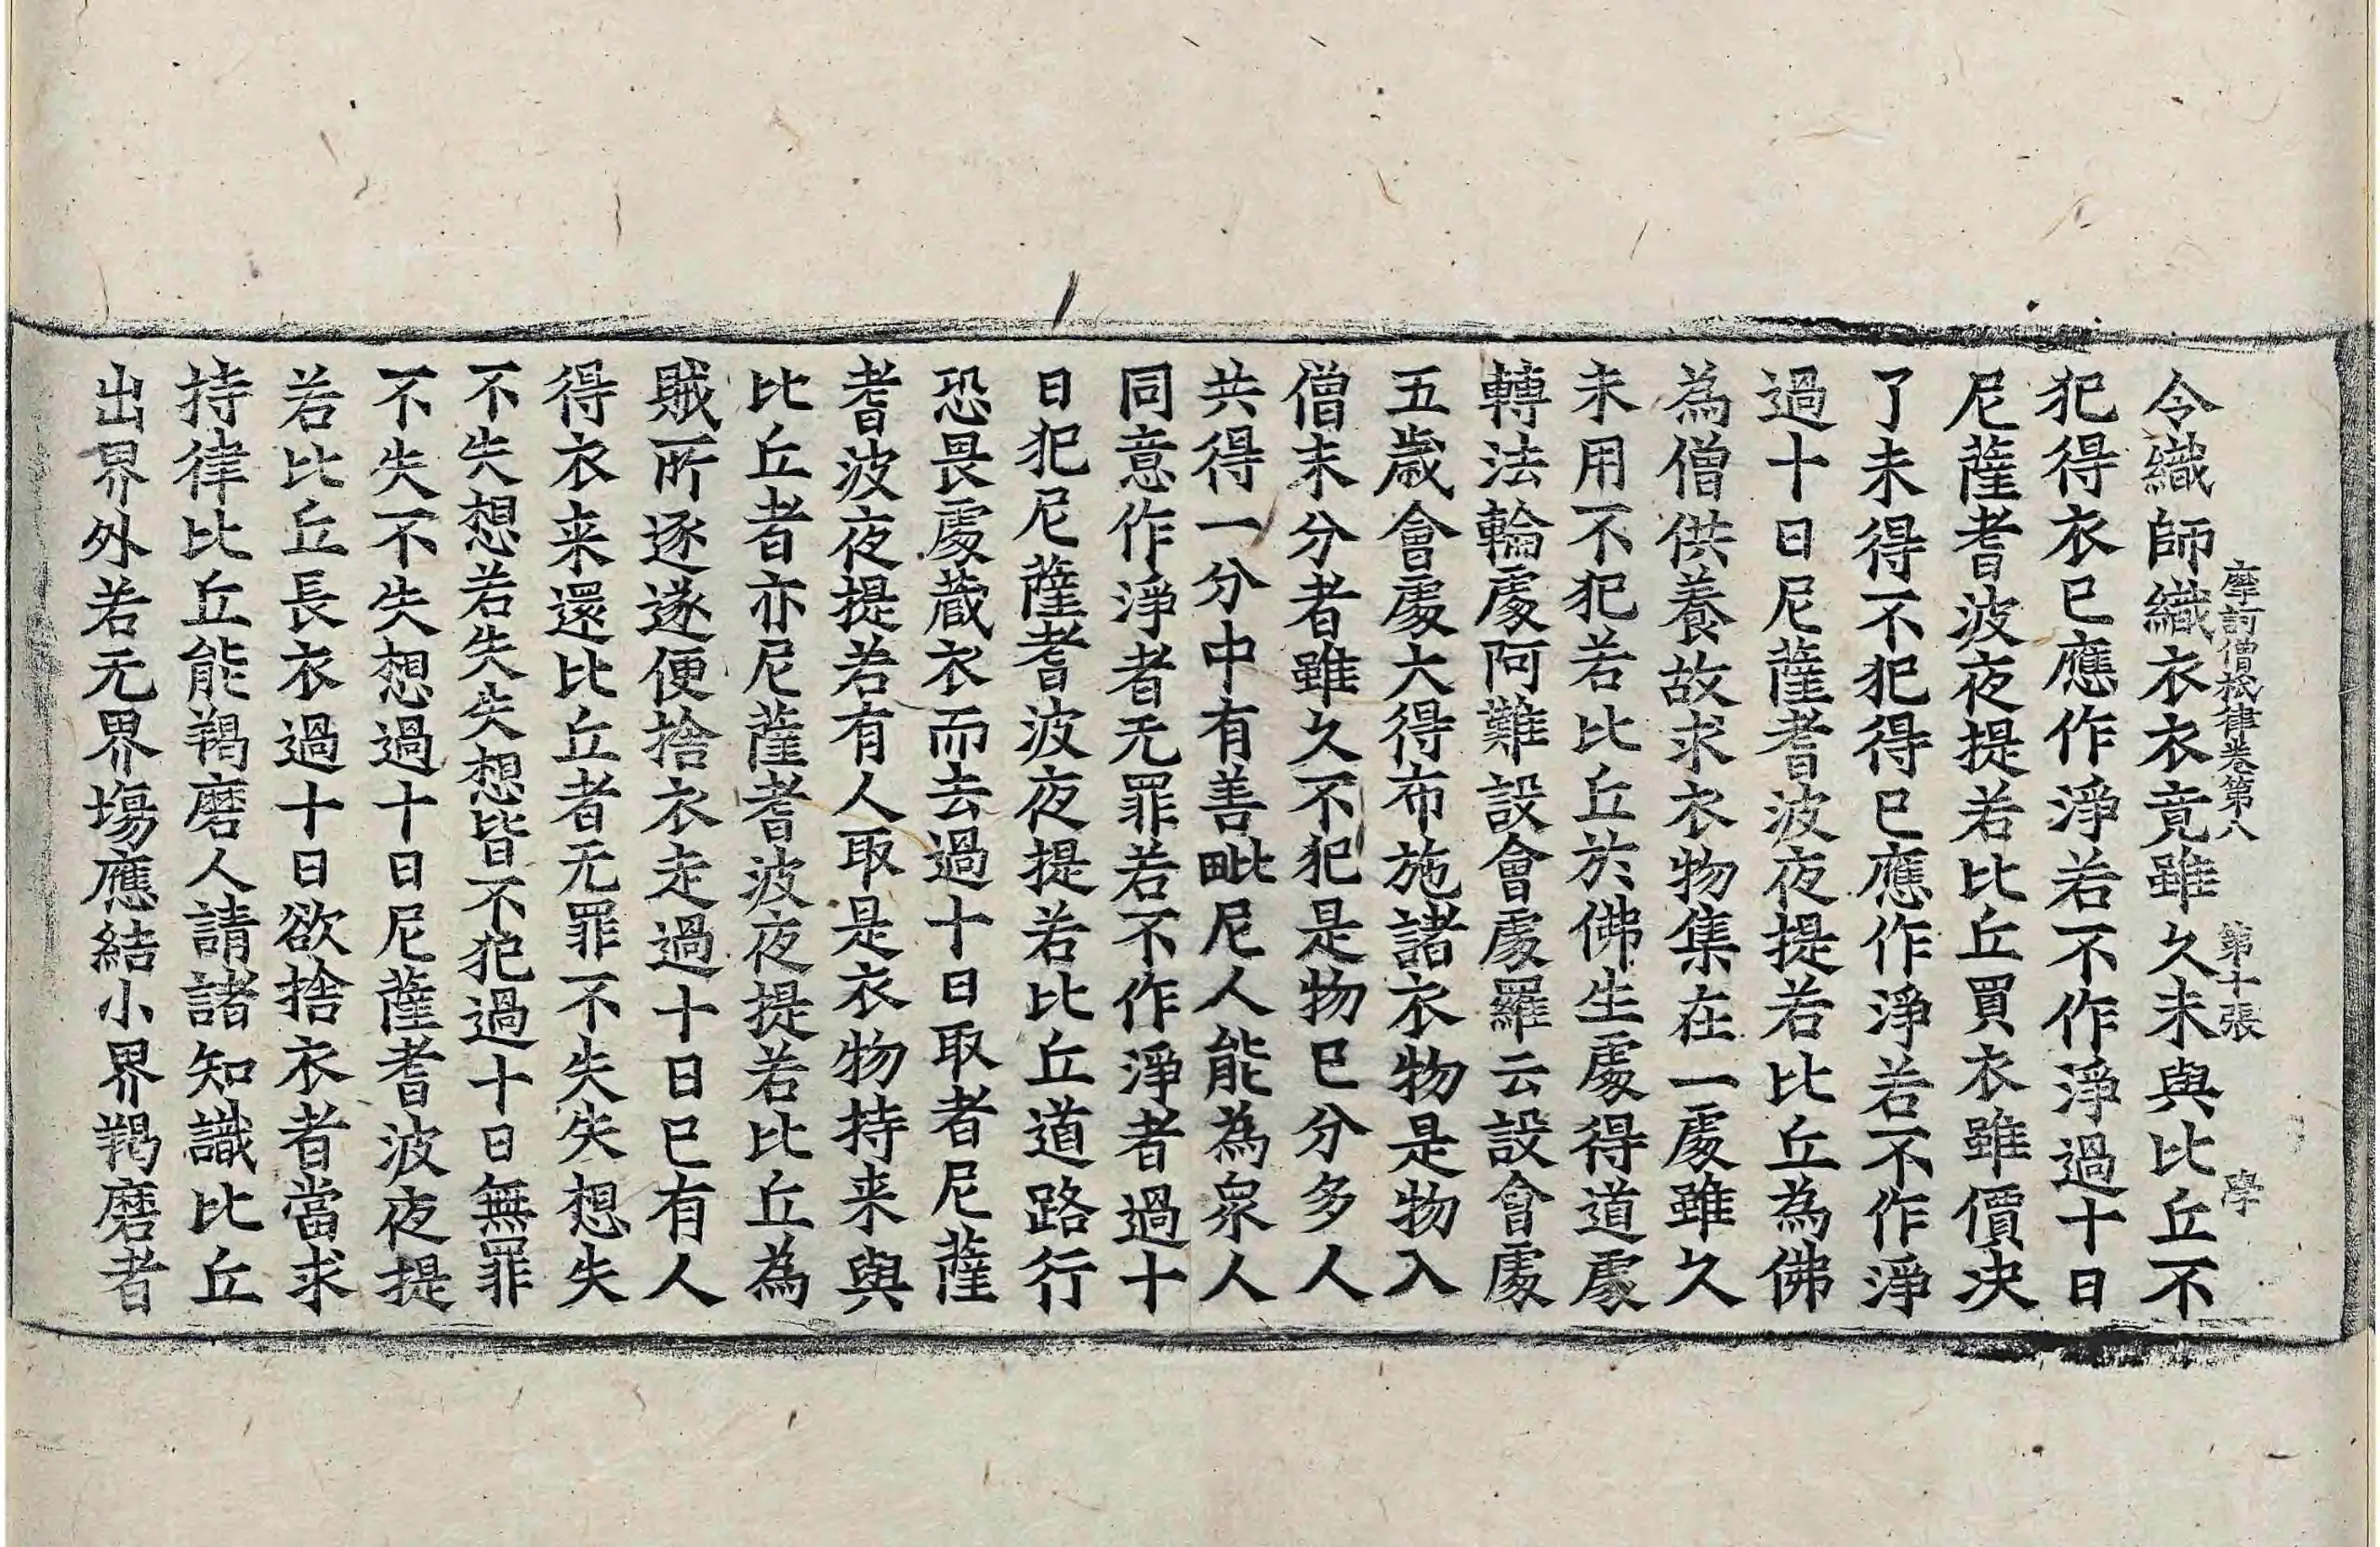 摩訶僧祇律卷第八 第十張 學
令織師織衣衣竟雖久未與比丘不
犯得衣已應作淨若不作淨過十日
尼薩耆波夜提若比丘買衣雖價决
了未得不犯得已應作淨若不作淨
過十日尼薩耆波夜提若比丘為佛
為僧供養故求衣物集在一處雖久
未用不犯若比丘於佛生處得道處
轉法輪處阿難設會處羅云設會處
五歲會處大得布施諸衣物是物入
僧未分者雖久不犯是物已分多人
共得一分中有善毗尼人能為衆人
同意作淨者无罪若不作淨者過十
日犯尼薩耆波夜提若比丘道路行
恐畏處藏衣而去過十日取者尼薩
耆波夜提若有人取是衣物持来與
比丘者亦尼薩耆波夜提若比丘為
賊所逐遂便捨衣走過十日已有人
得衣来還比丘者无罪不失失想失
不失想若失失想皆不犯過十日無罪
不失不失想過十日尼薩耆波夜提
若比丘長衣過十日欲捨衣者當求
持律比丘能羯磨人請諸知識比丘
出界外若无界塲應結小界羯磨者